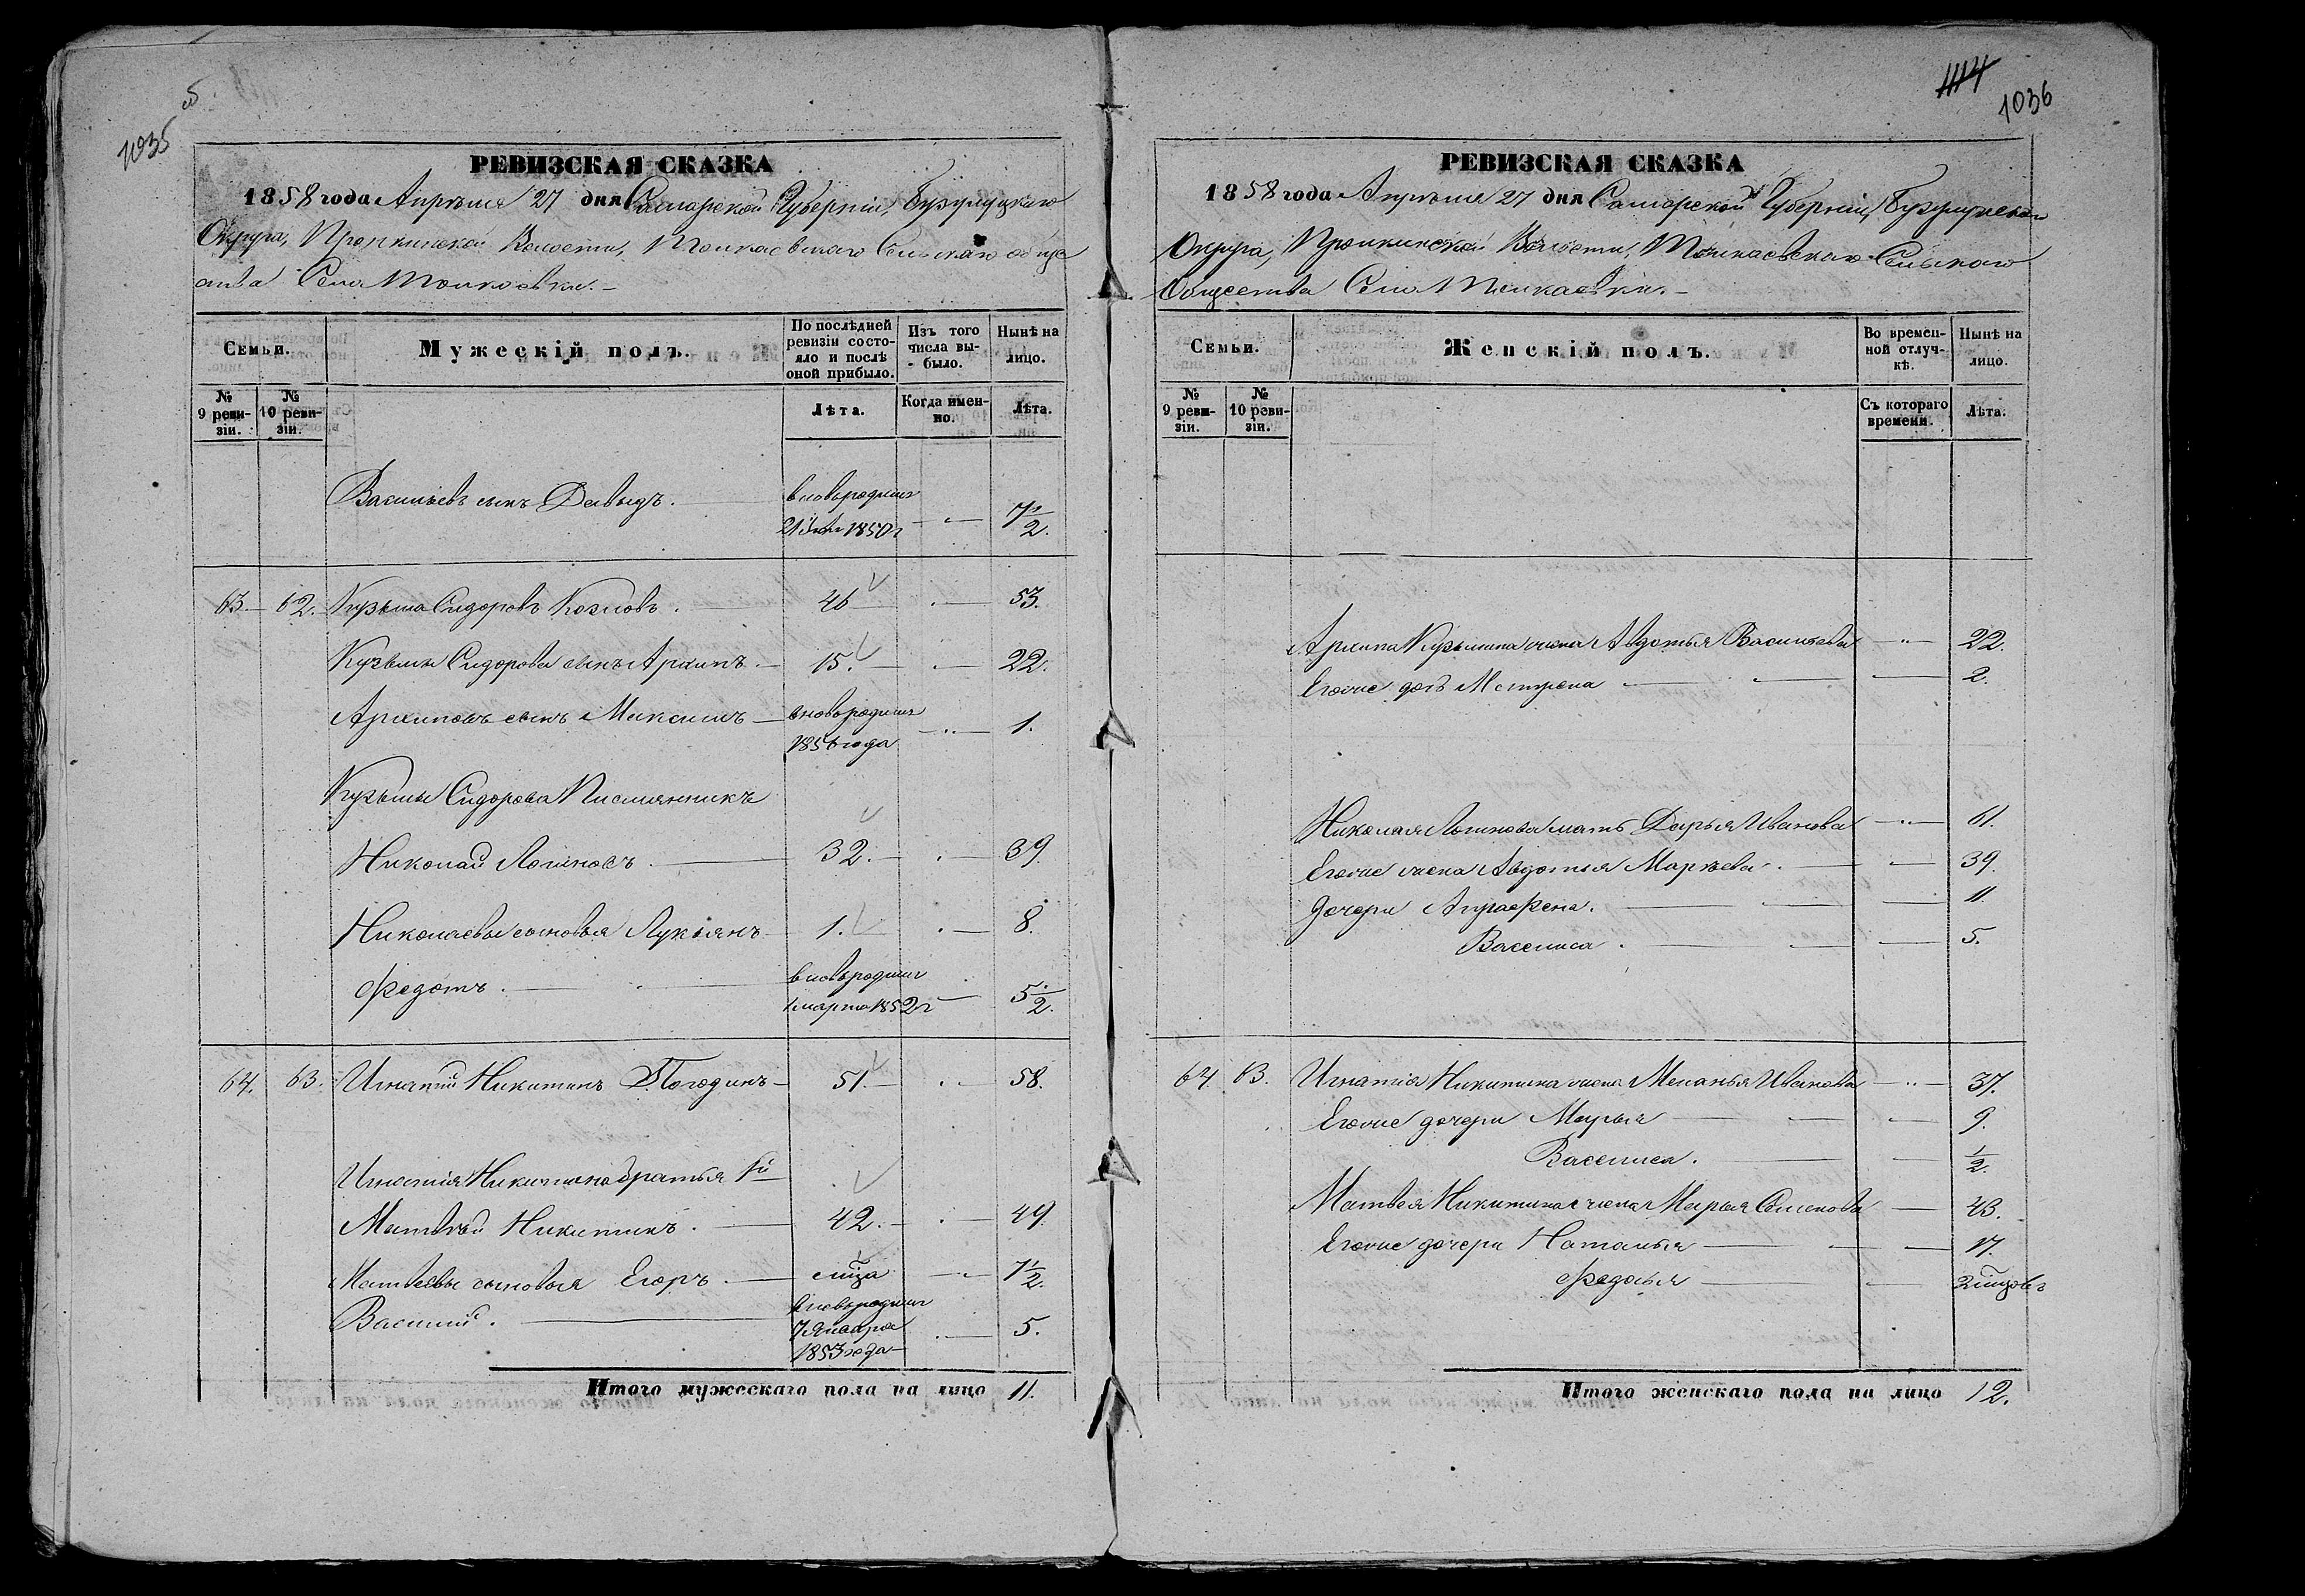 1035
об
РЕВИЗСКАЯ СКАЗКА
1858 года Апреля 27 дня Самарской Губернiи, Бузулуцкаго
Округа, Пронкинской Волости, Толкаевскаго Сельскаго обще
ства Села Толкаевки.
Семьи.
Мужескiй полъ.
По послѣдней ревизiи состояло и послѣ оной прибыло.
Изъ того числа выбыло.
Нынѣ на лицо.
№ 9 ревизiи.
№ 10 ревизiи.
Лѣта.
Когда именно.
Лѣта.
Васильевъ сынъ Давыдъ. вновьродился
21 1850 г 7 1/2.
63 62. Кузьма Сидоровъ Козловъ. 46 53.
Кузьмы Сидорова сынъ Архипъ 15. 22.
Архиповъ сынъ Максимъ вновьродился
1856 года 1.
Кузьмы Сидорова Племянникъ
Николай Логиновъ. 32. 39.
Николаевы сыновья Лукьянъ 1. 8.
Федотъ. вновьродился
1 марта 1852 г 5 1/2.
64. 63. Игнатiй Никитинъ Погодинъ 51. 58.
Игнатiя Никитина братья 1й
Матвѣй Никитинъ. 42. 49.
Матвеевы сыновья Егоръ. 7 1/2.
Василiй. вновьродился
7 Января
1853 года 5.
Итого мужескаго пола на лицо 11.
1036
РЕВИЗСКАЯ СКАЗКА
1858 года Апреля 27 дня Самарской Губернiи, Бузулускаго
Округа, Пронкинской Волости, Толкаевскаго Сельскаго
Общества Села Толкаевки.
Семьи.
Женскiй полъ.
Во временной отлучкѣ.
Нынѣ на лицо.
№ 9 ревизiи.
№ 10 ревизiи.
Съ котораго времени.
Лѣта.
Архипа Кузьмина жена Авдотья Васильева 22.
Егоже дочь Матрена 2.
Николая Логинова мать Дарья Иванова 61.
Егоже жена Авдотья Маркѣева. 39.
дочери Аграфена. 11.
Василиса. 5.
64. 63. Игнатiя Никитина жена Меланья Иванова 37.
Егоже дочери Марья 9.
Василиса. 1/2.
Матвея Никитина жена Марья Семенова 43.
Егоже дочери Наталья 17.
Федосья 3 мцовъ
Итого женскаго пола на лицо 12.